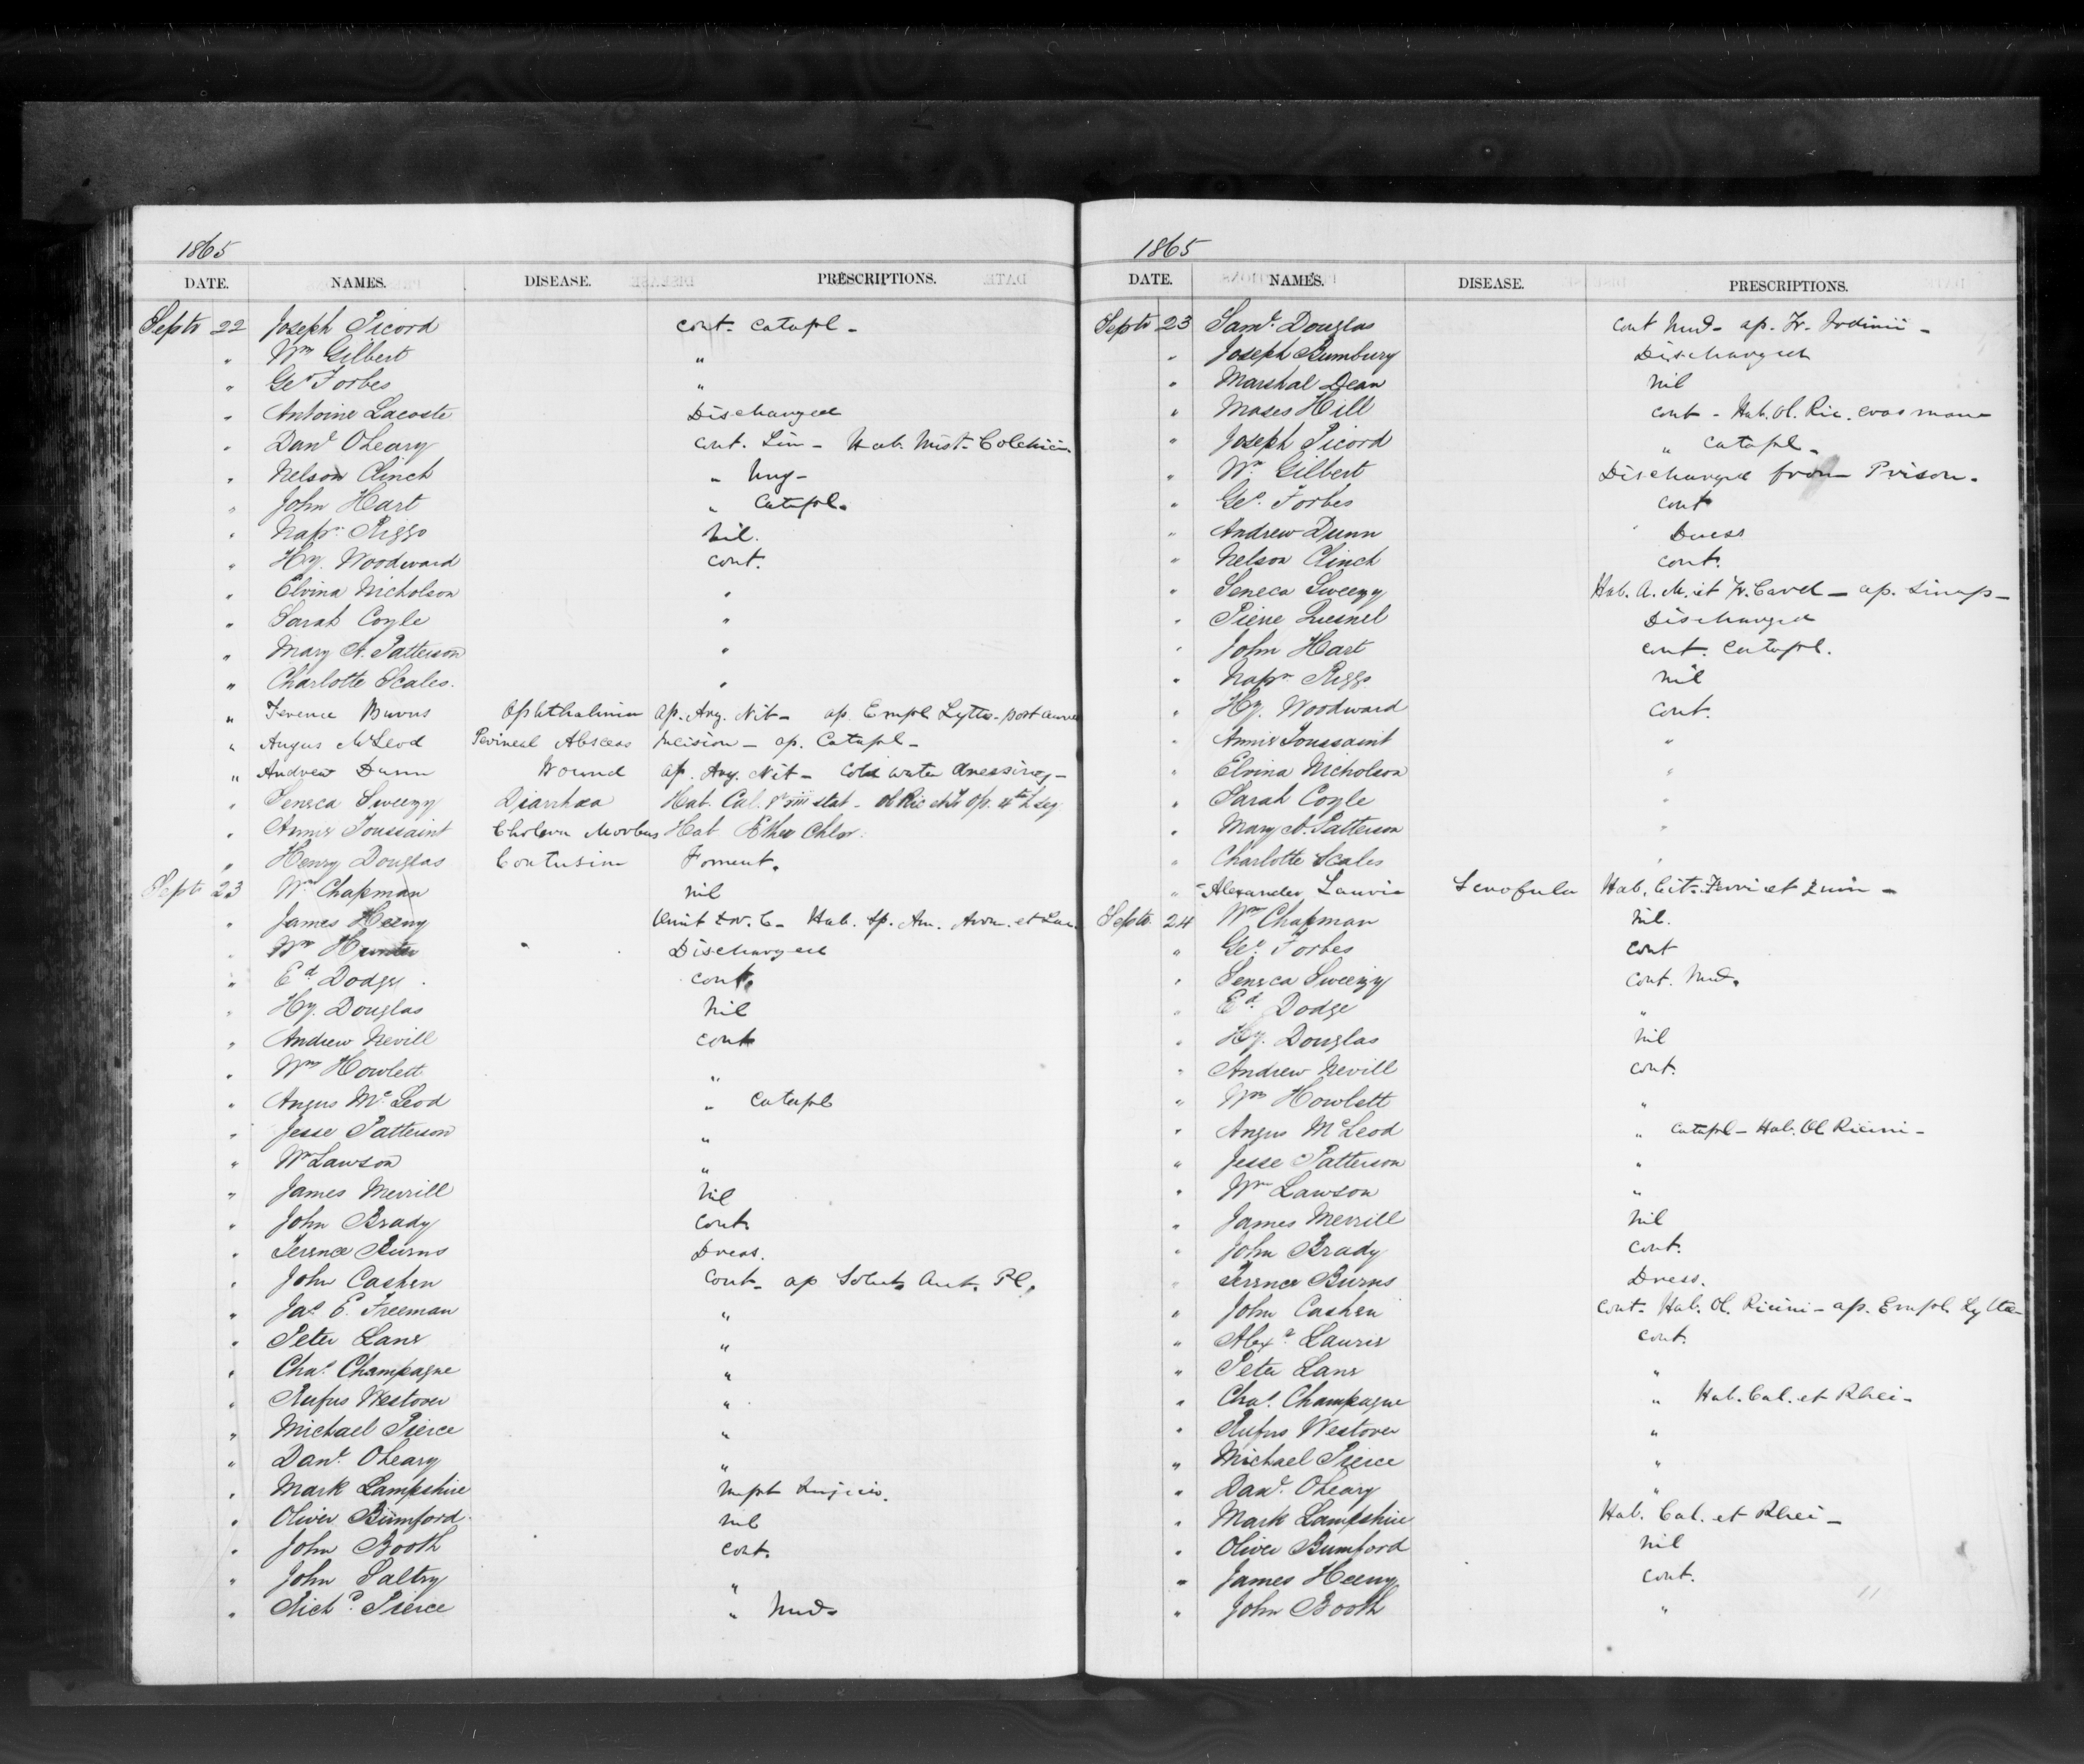 1865
DATE. NAMES. DISEASE. PRESCRIPTIONS.
Septr 22 Joseph Picord cont. Catapl -
" Wm Gilbert "
" Geo Forbes "
" Antoine Lacoste Discharged
" Danl OLeary cont. Lin - Hab. Mist. Colchici
" Nelson Clinch " Ung -
" John Hart " Catapl.
" Napn Riggs nil.
" Hy. Woodward cont.
" Elvina Nicholson "
" Sarah Coyle "
" Mary A. Patterson "
" Charlotte Scales. "
" Terence Burns Ophthalmia ap. Arg. Nit - ap Empl Lyttae - post aures
" Angus McLeod Perineal Abscess Incision - ap. Catapl -
" Andrew Dunn Wound ap. Arg. Nit - Cold water dressing -
" Seneca Sweezy Diarrhœa Hab. Cal. stat - Ol Ric
" Annie Toussaint Cholera Morbus Hab Æther Chlor.
" Henry Douglas Contusion Foment.
Septr 23 Wm Chapman nil
" James Heeny Omit Hab. Sp. Am. Arom. et
" Wm Hunter Discharged
" Ed Dodge. cont.
" Hy. Douglas nil
" Andrew Nevill cont
" Wm Howlett "
" Angus McLeod " Catapl
" Jesse Patterson "
" Wm Lawson "
" James Merrill nil
" John Brady cont.
" Terence Burns Dress.
" John Cashen Cont - ap Solut.
" Jas E. Freeman "
" Peter Lane "
" Chas. Champagne "
" Rufus Westover "
" Michael Pierce "
" Danl. OLeary "
" Mark Lampshire
" Oliver Bumford. nil
" John Booth cont.
" John Paltry "
" Richd. Pierce " Med -
1865
DATE. NAMES. DISEASE. PRESCRIPTIONS.
Septr 23 Saml. Douglas cont Med - ap. Tr. Iodinii -
" Joseph Bumbury Discharged
" Marshal Dean nil
" Moses Hill cont - Hab. Ol. Ric. cras mane
" Joseph Picord " Catapl -
" Wm Gilbert Discharged from Prison.
" Geo. Forbes cont
" Andrew Dunn Dress
" Nelson Clinch cont.
" Seneca Sweezy Hab. A. M. et Tr. Card - ap. Sinap -
" Pierre Quesnel Discharged
" John Hart cont. Catapl.
" Napn Riggs nil
" Hy. Woodward cont.
" Annie Toussaint "
" Elvina Nicholson "
" Sarah Coyle "
" Mary A. Patterson "
" Charlotte Scales "
" Alexander Laurie Scrofula Hab. Cit. Ferri et Quin -
Septr. 24 Wm Chapman nil.
" Geo. Forbes cont
" Seneca Sweezy cont. Med.
" Ed. Dodge "
" Hy. Douglas nil
" Andrew Nevill cont.
" Wm Howlett "
" Angus McLeod " Catapl - Hab. Ol Ricini -
" Jesse Patterson "
" Wm Lawson "
" James Merrill nil
" John Brady cont.
" Terence Burns Dress.
" John Cashen cont. Hab. Ol. Ricini - ap. Empl. Lyttae
" Alexr. Laurie cont.
" Peter Lane "
" Chas. Champagne " Hab. Cal. et Rhei -
" Rufus Westover "
" Michael Pierce "
" Danl. OLeary "
" Mark Lampshire Hab. Cal. et Rhei -
" Oliver Bumford nil
" James Heeny cont.
" John Booth "